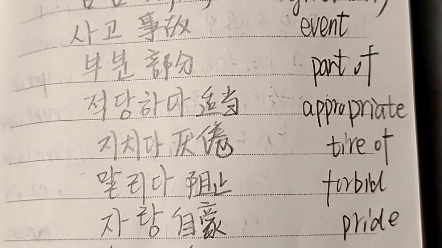 사고 事故 event
부분 部分 part of
적당하다 适当 appropriate
지치다 厌倦 tire of
말리다 阻止 forbid
자랑 自豪 pride